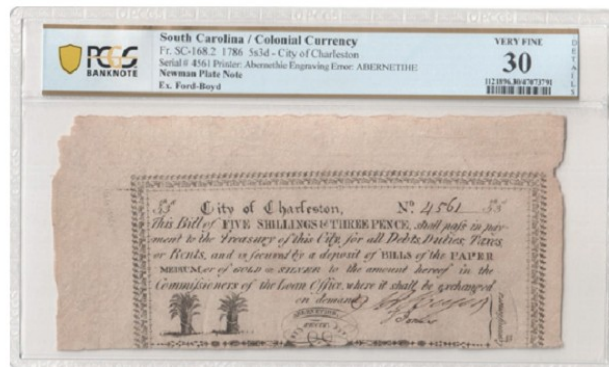 South Carolina / Colonial Currency
Fr. SC-168.2 1786 5s3d - City of Charleston
Serial # 4561 Printer: Abernethie Engraving Error: ABERNETIHE
Newman Plate Note
Ex. Ford-Boyd
PCGS
BANKNOTE
VERY FINE
30
DETAILS
City of Charleston, No. 4561
This Bill of FIVE SHILLINGS & THREE PENCE, shall pass in pay-
ment to the Treasury of this City, for all Debts, Duties, Taxes,
or Rents, and is secured by a deposit of BILLS of the PAPER
MEDIUM, or of GOLD or SILVER to the amount hereof in the
Commissioners of the Loan Office, where it shall be exchanged
on demand